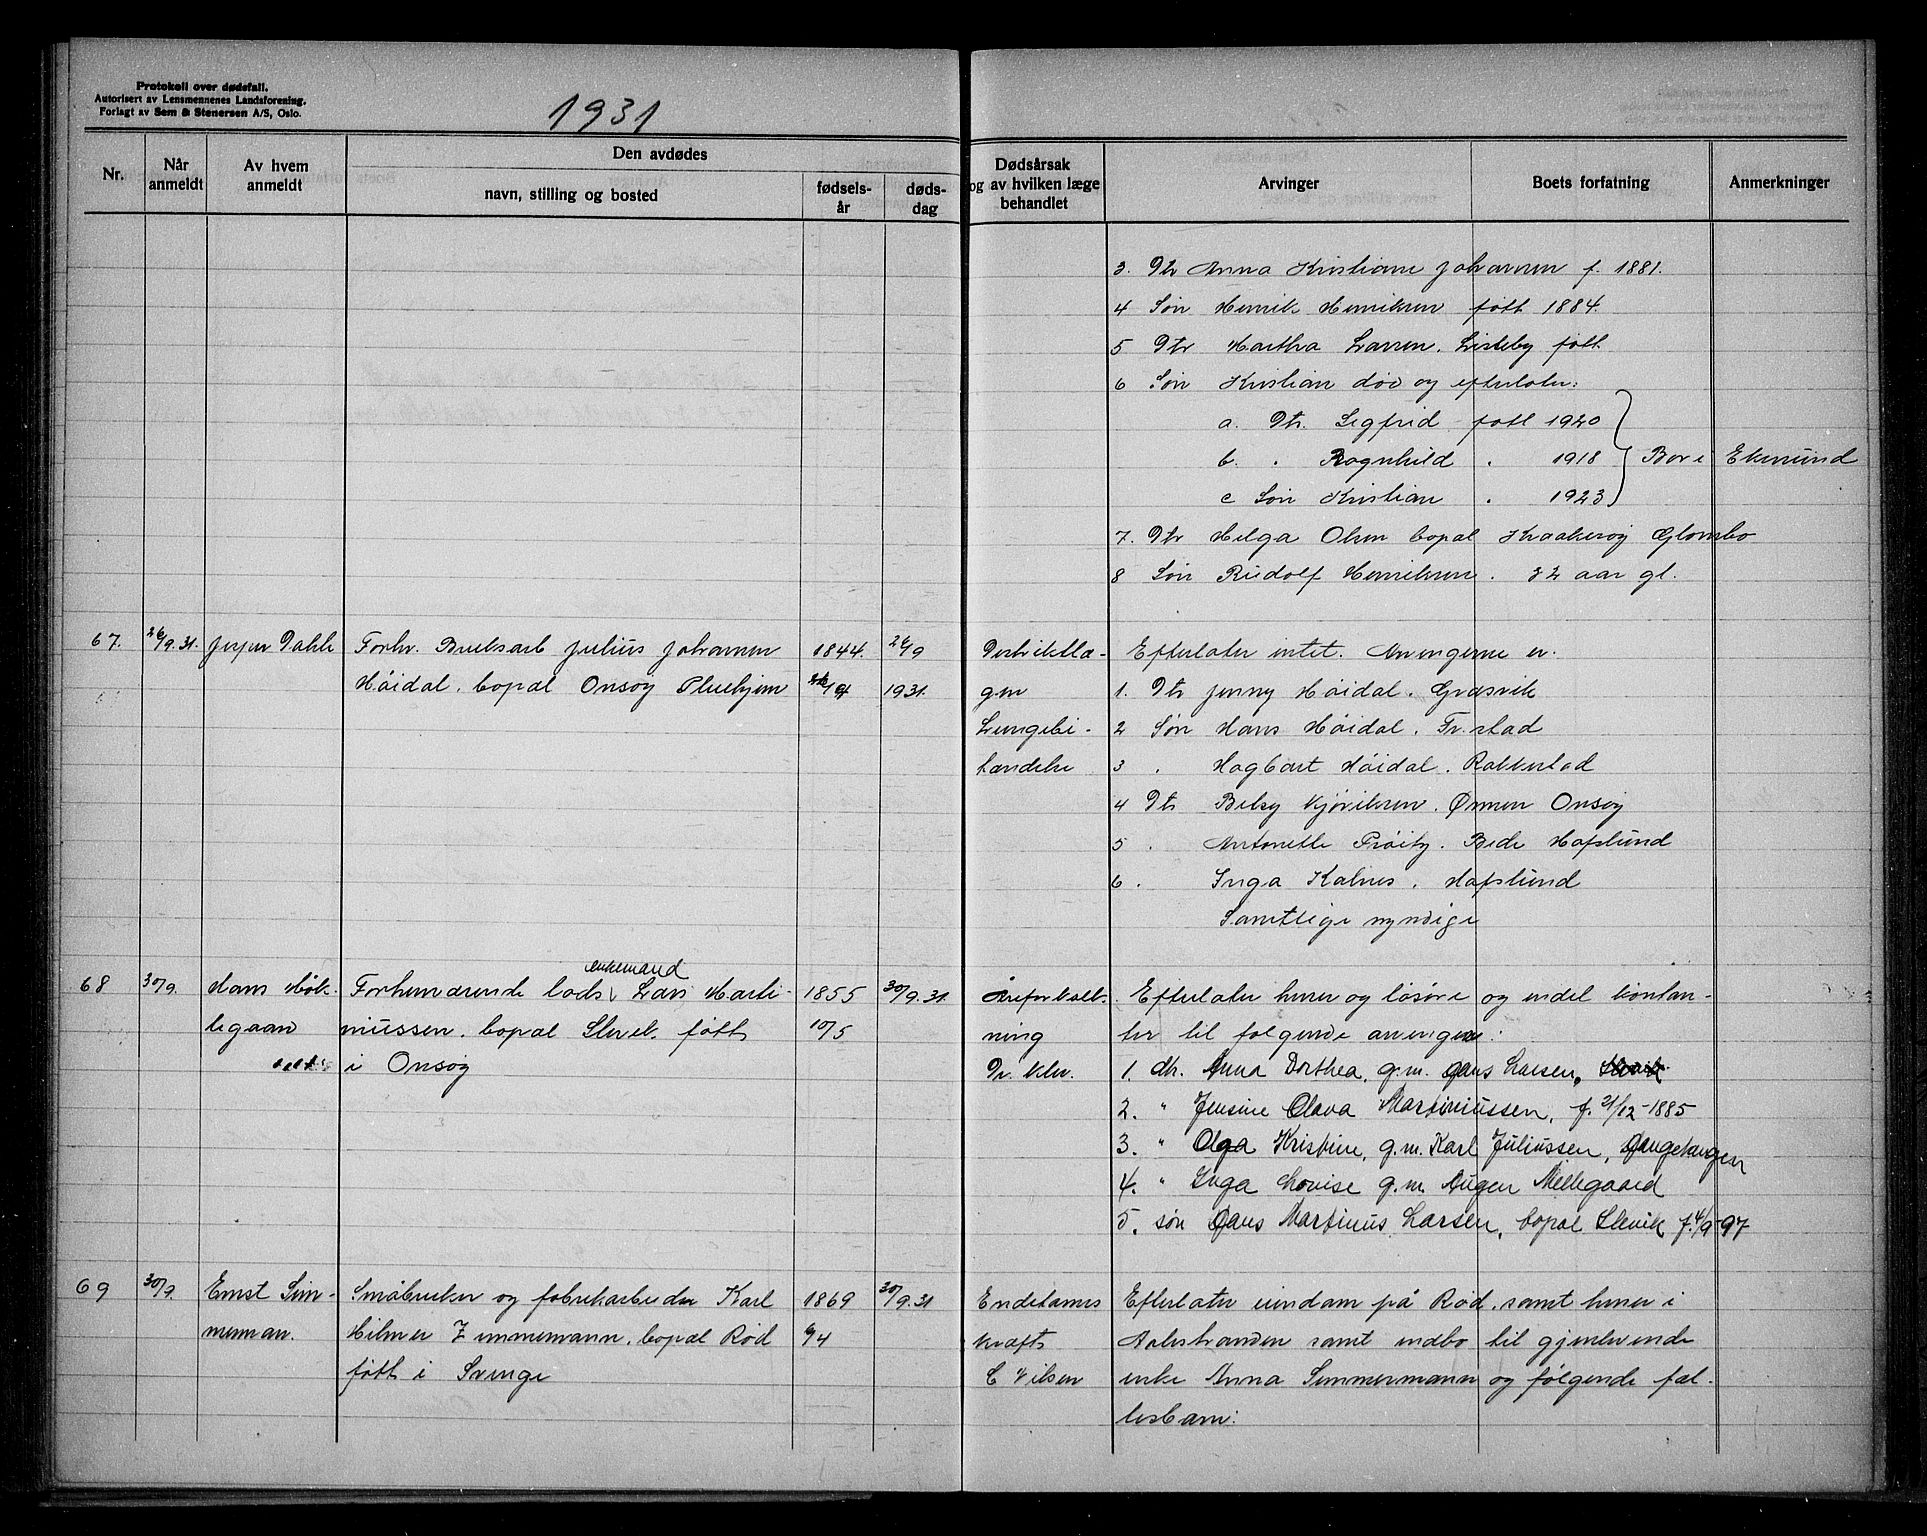 Protokoll over dødsfall.
Autorisert av Lensmennenes Landsforening.
Forlagt av Sem & Stenersen A/S, Oslo.
1931
Nr.
Når anmeldt
Av hvem anmeldt
Den avdødes
navn, stilling og bosted
fødselsår
dødsdag
Dødsårsak og av hvilken læge behandlet
Arvinger
Boets forfatning
Anmerkninger
3. Dtr Anna Kristiane Johansen f. 1881.
4 Søn Henrik Henriksen født 1884.
5 Dtr Martha Larsen. Lisleby født
6 Søn Kristian død og efterlater:
a. Dtr. Sigfrid født 1920
b. . Ragnhild . 1918 Bor i Eknund
c Søn Kristian . 1923
7. Dtr Helga Olsen bopal Kraakerøy Glombo
8 Søn Rudolf Henriksen. 32 aar gl.
67. 26/9.31. Jesper Dahle
Forhv. Bruksarb Julius Johannsen
Høidal. bopal Onsøy Pleiehjem
1844.
26/9
1931.
Distriktlæ-
gen
Lungebe-
tændelse
Efterlater intet. Arvingerne er.
1. Dtr Jenny Høidal. Gresvik
2 Søn Hans Høidal. Fr.stad
3 . Hagbart Høidal. Rakkestad
4 Dtr Betsy Kjøriksen. Ørmen Onsøy
5 . Antonette Prøitz. Bede Hafslund
6 . Inga Kalnes. Hafslund
Samtlige myndige
68 30/9. Hans Møk-
legaard
Forhenværende lods enkemand Lars Marti-
niussen. bopal Slevik. født
i Onsøy
1855
10/5
30/9.31.
Åreforkalk-
ning
Dr. Klev.
Efterlater huner og løsøre og endel kontan-
ter til følgende arvinger:
1. dtr. Anna Dorthea, g.m. Hans Larsen, Slevik
2. " Jensine Olava Martiniussen, f. 21/12-1885
3. " Olga Kristine, g.m. Karl Juliussen, Haugehaugen
4. " Inga Lovise g.m. Augen Mellegaard
5. søn Hans Martinius Larsen, bopal Slevik f. 4/9-97
69 30/9. Ernst Sim-
merman.
Småbruker og fabrikarbeider Karl
Hilmer Zimmermann. bopal Rød
født i Sverige
1869
6/4
30/9.31
Endetarms
kræft
C Nilsen
Efterlater eiendom på Rød. samt huner i
Aalestranden samt indbo til gjenlevende
enke Anna Simmermann og følgende fel-
lesbarn: